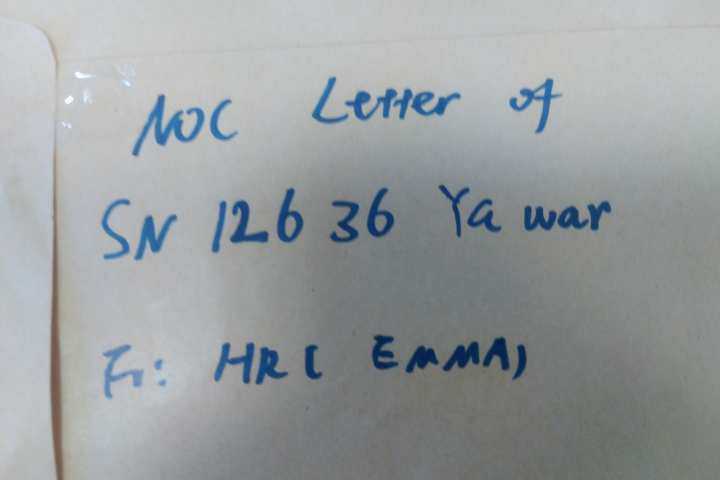 NOC Letter of
SN 12636 Yawar
Fr: HR ( EMMA)